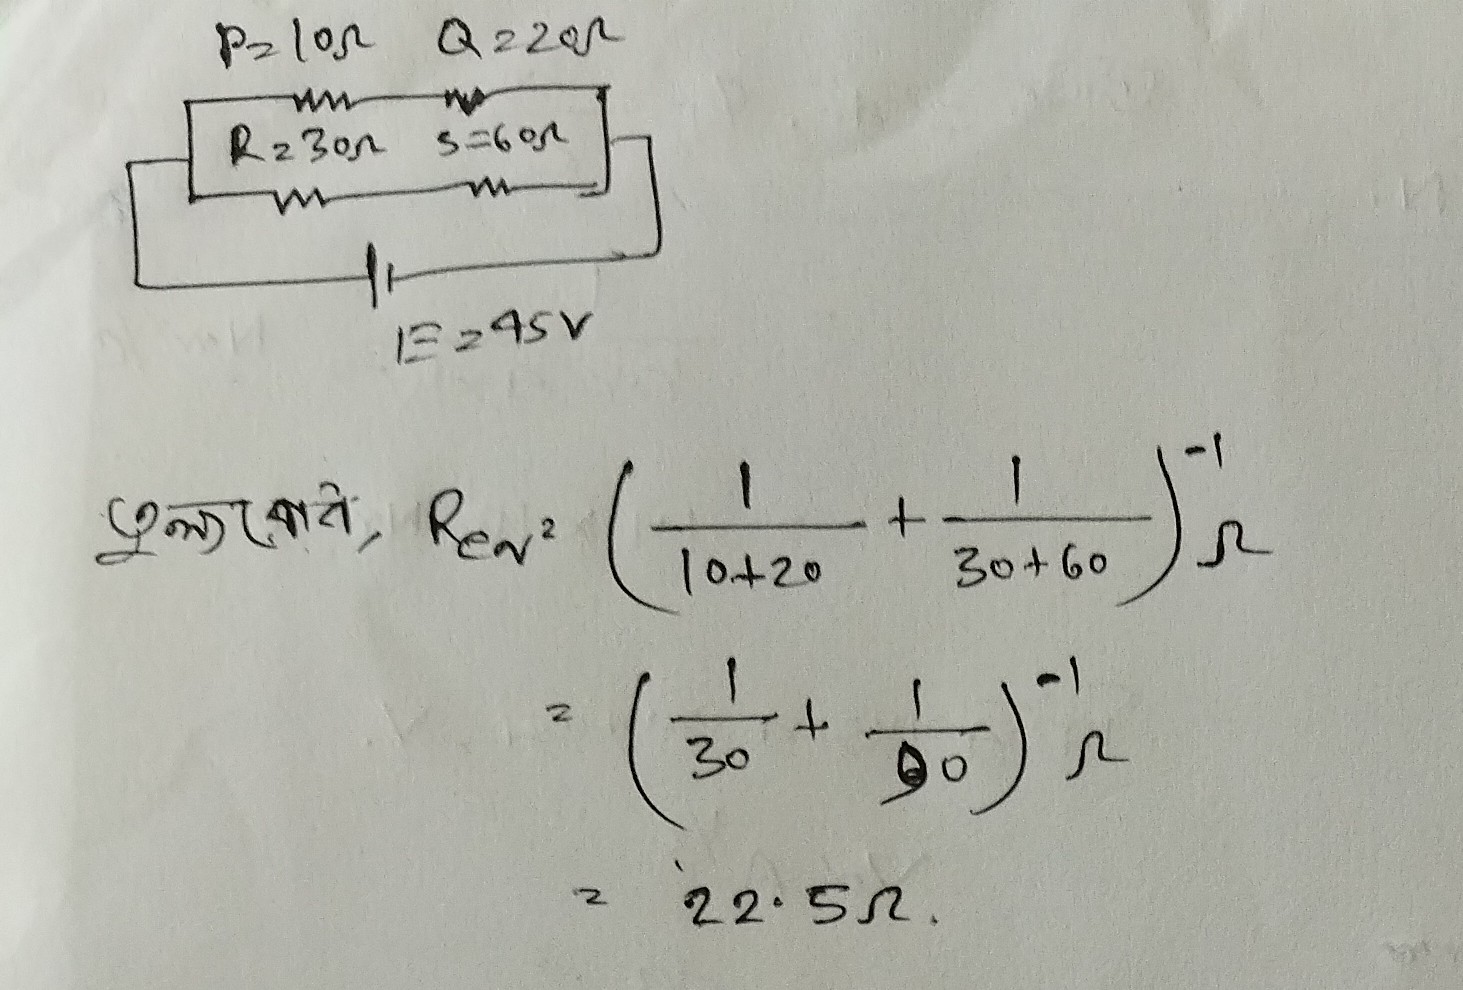 P=10Ω Q=20Ω
R=30Ω S=60Ω
E=45V
তুল্যরোধ, Req = (1/(10+20) + 1/(30+60))⁻¹ Ω
= (1/30 + 1/90)⁻¹ Ω
= 22.5Ω.